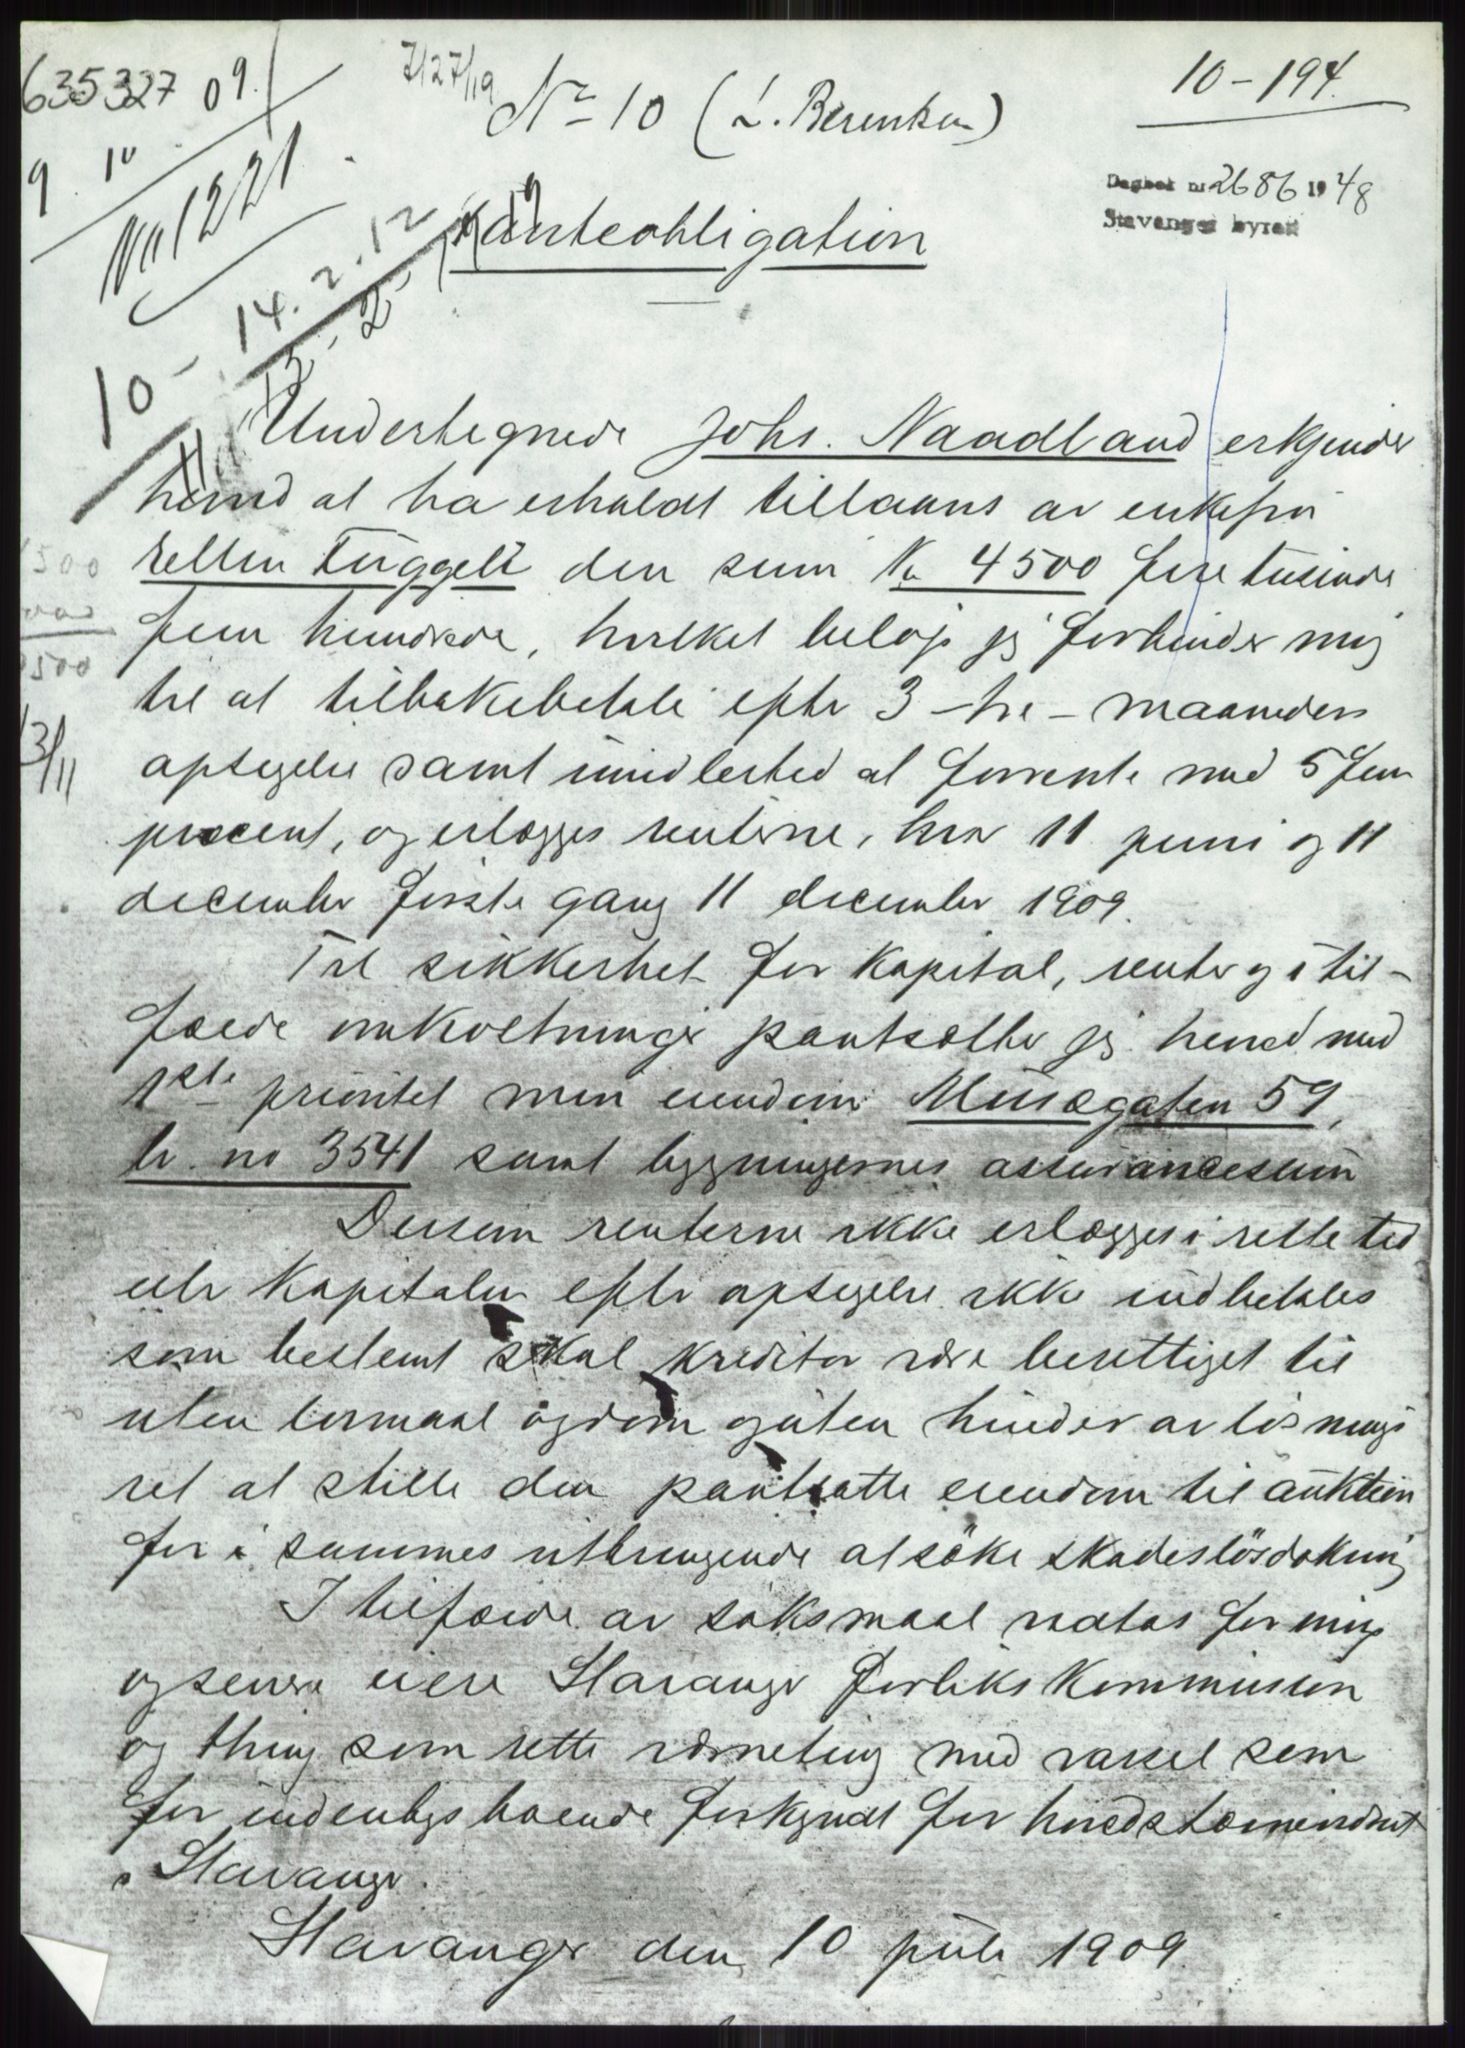 635327 09.
7/27/19
No 10 (L. Berentsen)
10-194
9. 10
No 1221
Dagbok nr 2686 1948
Stavanger byrett
Panteobligation
10-14.2.12
Undertegnede Johs. Naadland erkjender
herved at ha erholdt tillaans av enkefru
Ellen Tüggeli den sum Kr 4500 fire tusinde
fem hundrede, hvilket beløp jeg forbinder mig
til at tilbakebetale efter 3 - tre - maaneders
opsigelse samt imidlertid at forrente med 5 fem
procent, og erlægges renterne, hver 11 juni og 11
december første gang 11 december 1909.
500
500
13/11
Til sikkerhet for kapital, renter og i til-
fælde omkostninger pantsætter jeg herved med
1ste prioritet min eiendom Musægaten 59,
br. no 3541 samt bygningernes assurancesum
Dersom renterne ikke erlægges i rette tid
eller kapitalen efter opsigelse ikke indbetales
som bestemt skal kreditor være berettiget til
uten lovmaal og dom og uten hinder av løsnings
ret at stille den pantsatte eiendom til auktion
for i sammes utbringende at søke skadesløsdækning
I tilfælde av søksmaal vedtas for mig
og senere eiere Stavanger Forlikskommission
og thing som rette værneting med varsel som
for indenbys boende forkyndt for hovedstævnevidnet
i Stavanger.
Stavanger den 10 juli 1909.